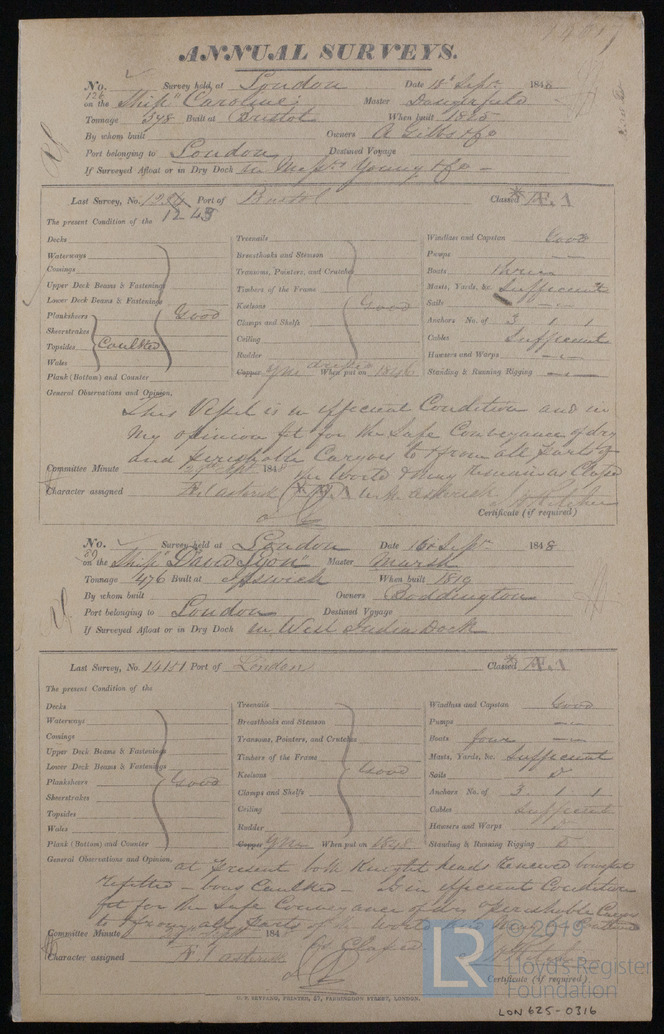 ANNUAL SURVEYS.
No. 126 Survey held at London Date 18th Septr 1848
on the Ship "Caroline" Master Dangerfield
Tonnage 398 Built at Bristol When built 1825
By whom built Owners A Gibbs & Co
Port belonging to London Destined Voyage
If Surveyed Afloat or in Dry Dock in Messrs Young & Co
Last Survey, No. 1243 Port of Bristol Classed Æ.1
The present Condition of the
Decks Treenails Windlass and Capstan Good
Waterways Breasthooks and Stemson Pumps
Comings Transoms, Pointers, and Crutches Boats three
Upper Deck Beams & Fastenings Timbers of the Frame Masts, Yards, &c. Sufficient
Lower Deck Beams & Fastenings Keelsons Good Sails
Planksheers Good Clamps and Shelfs Anchors No. of 3 1 1
Sheerstrakes Ceiling Cables Sufficient
Topsides Caulked Rudder Hawsers and Warps
Wales Copper When put on 1846 Standing & Running Rigging
Plank (Bottom) and Counter
General Observations and Opinion,
This Vessel is in efficient Condition and in
my opinion fit for the Safe Conveyance of dry
and perishable Cargoes to & from all Parts of
the World & may remain as Classed
Committee Minute 1848
Character assigned Æ.1 asterisk
Certificate (if required)
No. 89 Survey held at London Date 16th Septr 1848
on the Ship "David Lyon" Master Marsh
Tonnage 476 Built at Ipswich When built 1819
By whom built Owners Boddington
Port belonging to London Destined Voyage
If Surveyed Afloat or in Dry Dock in West India Dock
Last Survey, No. 14151 Port of London Classed Æ.1
The present Condition of the
Decks Treenails Windlass and Capstan Good
Waterways Breasthooks and Stemson Pumps
Comings Transoms, Pointers, and Crutches Boats four
Upper Deck Beams & Fastenings Timbers of the Frame Masts, Yards, &c. Sufficient
Lower Deck Beams & Fastenings Keelsons Good Sails
Planksheers Good Clamps and Shelfs Anchors No. of 3 1 1
Sheerstrakes Ceiling Cables Sufficient
Topsides Rudder Hawsers and Warps
Wales Copper YM When put on 1848 Standing & Running Rigging
Plank (Bottom) and Counter
General Observations and Opinion,
at Present both Knight heads renewed bowsprit
refitted - bows Caulked - is in efficient Condition
fit for the Safe Conveyance of dry & perishable Cargoes
to & from all Parts of the World
Committee Minute 184
as Classed
Character assigned Æ.1 asterisk
Certificate (if required)
LR © 2019
Lloyd's Register
Foundation
LON625-0316